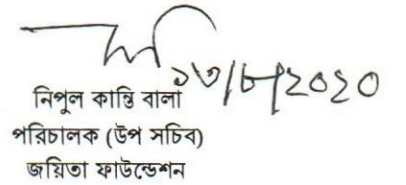 ১৩/৮/২০২০
নিপুল কান্তি বালা
পরিচালক (উপ সচিব)
জয়িতা ফাউন্ডেশন